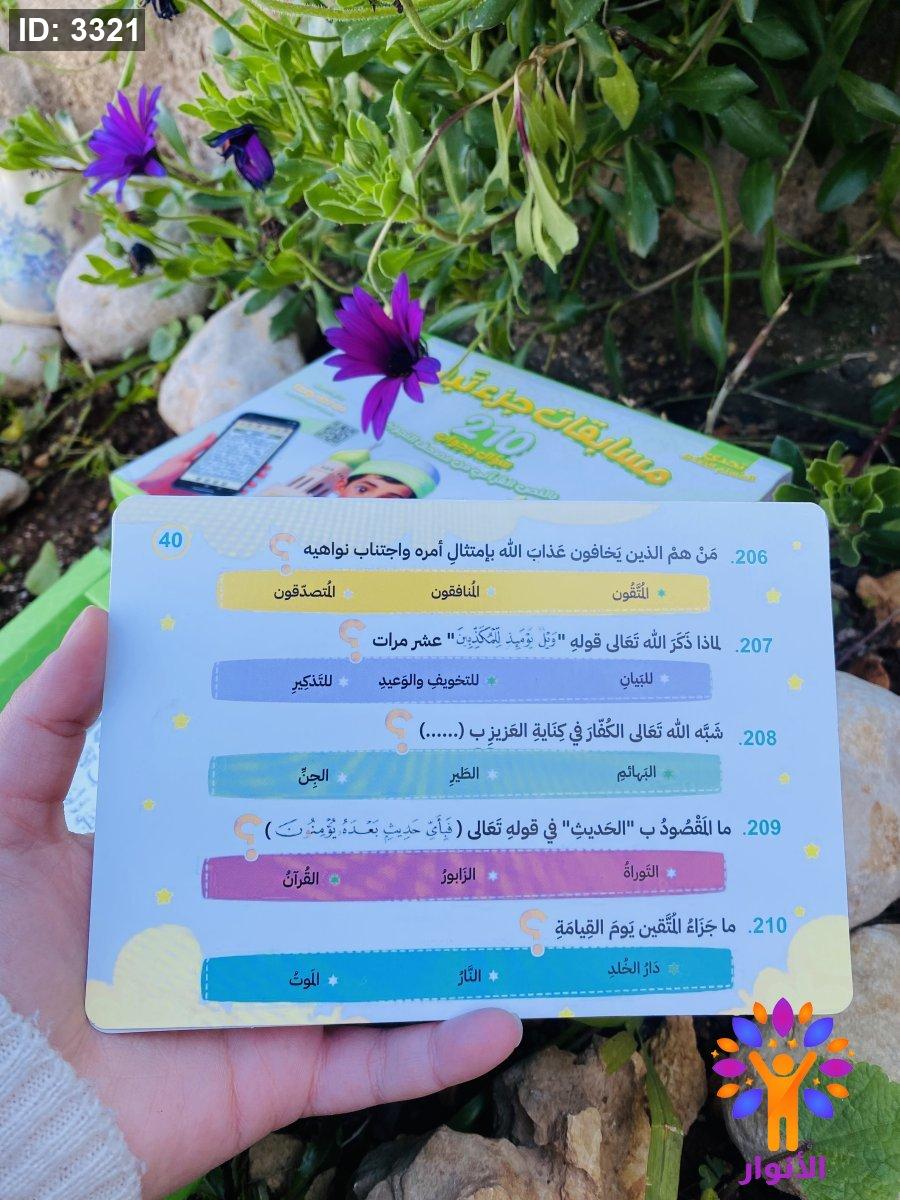 ID: 3321
مسابقات جزء تبا
210
سؤال وجواب
40
206. مَنْ همْ الذين يَخافون عَذابَ الله بإمتثالِ أمره واجتناب نواهيه ؟
المُتَّقُون المُنافقون المُتصدّقون
207. لماذا ذَكَرَ الله تَعَالى قولهِ "وَيْلٌ يَوْمَئِذٍ لِّلْمُكَذِّبِينَ" عشر مرات ؟
للبَيانِ للتخويفِ والوَعيدِ للتَذكِيرِ
208. شَبَّه الله تَعَالى الكُفّارَ في كِنَايةِ العَزيزِ ب (......) ؟
البَهائمِ الطَيرِ الجِنِّ
209. ما المَقْصُودُ ب "الحَديثِ" في قولهِ تَعَالى ( فَبِأَيِّ حَدِيثٍ بَعْدَهُ يُؤْمِنُونَ ) ؟
التَوراةُ الزَابورُ القُرآنُ
210. ما جَزَاءُ المُتَّقين يَومَ القِيامَةِ ؟
دَارُ الخُلدِ النَّارُ المَوتُ
الأنوار